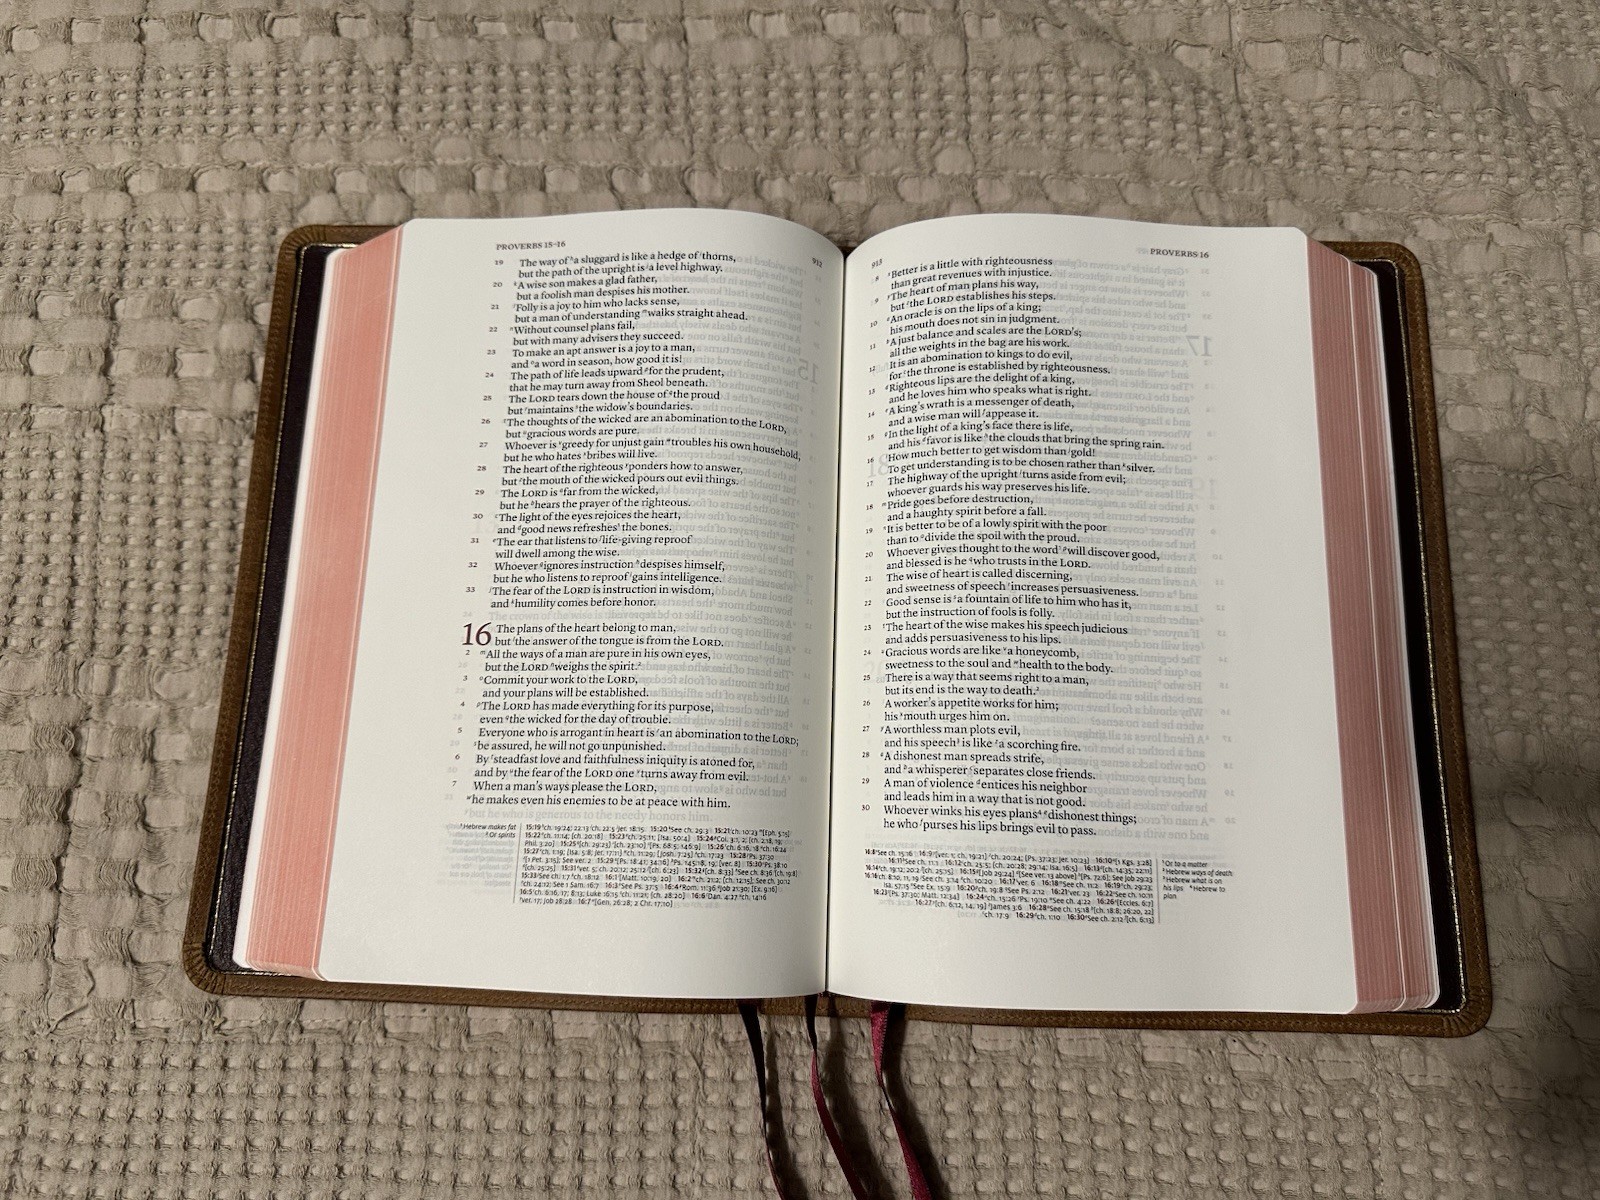 PROVERBS 15–16
912
19 The way of ʰa sluggard is like a hedge of ⁱthorns,
but the path of the upright is ʲa level highway.
20 ᵏA wise son makes a glad father,
but a foolish man despises his mother.
21 ˡFolly is a joy to him who lacks sense,
but a man of understanding ᵐwalks straight ahead.
22 ⁿWithout counsel plans fail,
but with many advisers they succeed.
23 To make an apt answer is a joy to a man,
and ᵒa word in season, how good it is!
24 The path of life leads upward ᵖfor the prudent,
that he may turn away from Sheol beneath.
25 The LORD tears down the house of ᑫthe proud
but ʳmaintains ˢthe widow's boundaries.
26 ᵗThe thoughts of the wicked are an abomination to the LORD,
but ᵘgracious words are pure.
27 Whoever is ᵛgreedy for unjust gain ʷtroubles his own household,
but he who hates ˣbribes will live.
28 The heart of the righteous ʸponders how to answer,
but ᶻthe mouth of the wicked pours out evil things.
29 The LORD is ᵃfar from the wicked,
but he ᵇhears the prayer of the righteous.
30 ᶜThe light of the eyes rejoices the heart,
and ᵈgood news refreshes¹ the bones.
31 ᵉThe ear that listens to ᶠlife-giving reproof
will dwell among the wise.
32 Whoever ᵍignores instruction ʰdespises himself,
but he who listens to reproof ⁱgains intelligence.
33 ʲThe fear of the LORD is instruction in wisdom,
and ᵏhumility comes before honor.
16 The plans of the heart belong to man,
but ˡthe answer of the tongue is from the LORD.
2 ᵐAll the ways of a man are pure in his own eyes,
but the LORD ⁿweighs the spirit.²
3 ᵒCommit your work to the LORD,
and your plans will be established.
4 ᵖThe LORD has made everything for its purpose,
even ᑫthe wicked for the day of trouble.
5 Everyone who is arrogant in heart is ʳan abomination to the LORD;
ˢbe assured, he will not go unpunished.
6 By ᵗsteadfast love and faithfulness iniquity is atoned for,
and by ᵘthe fear of the LORD one ᵛturns away from evil.
7 When a man's ways please the LORD,
ʷhe makes even his enemies to be at peace with him.
¹ Hebrew makes fat
² Or spirits
913
PROVERBS 16
8 ˣBetter is a little with righteousness
than great revenues with injustice.
9 ʸThe heart of man plans his way,
but ᶻthe LORD establishes his steps.
10 ᵃAn oracle is on the lips of a king;
his mouth does not sin in judgment.
11 ᵇA just balance and scales are the LORD's;
all the weights in the bag are his work.
12 It is an abomination to kings to do evil,
for ᶜthe throne is established by righteousness.
13 ᵈRighteous lips are the delight of a king,
and he loves him who speaks what is right.
14 ᵉA king's wrath is a messenger of death,
and a wise man will ᶠappease it.
15 ᵍIn the light of a king's face there is life,
and his ᵍfavor is like ʰthe clouds that bring the spring rain.
16 ⁱHow much better to get wisdom than ʲgold!
To get understanding is to be chosen rather than ᵏsilver.
17 The highway of the upright ˡturns aside from evil;
whoever guards his way preserves his life.
18 ᵐPride goes before destruction,
and a haughty spirit before a fall.
19 ⁿIt is better to be of a lowly spirit with the poor
than to ᵒdivide the spoil with the proud.
20 Whoever gives thought to the word¹ ᵖwill discover good,
and blessed is he ᑫwho trusts in the LORD.
21 The wise of heart is called discerning,
and sweetness of speech ʳincreases persuasiveness.
22 Good sense is ˢa fountain of life to him who has it,
but the instruction of fools is folly.
23 ᵗThe heart of the wise makes his speech judicious
and adds persuasiveness to his lips.
24 ᵘGracious words are like ᵛa honeycomb,
sweetness to the soul and ʷhealth to the body.
25 There is a way that seems right to a man,
but its end is the way to death.²
26 A worker's appetite works for him;
his ˣmouth urges him on.
27 ʸA worthless man plots evil,
and his speech³ is like ᶻa scorching fire.
28 ᵃA dishonest man spreads strife,
and ᵇa whisperer ᶜseparates close friends.
29 A man of violence ᵈentices his neighbor
and leads him in a way that is not good.
30 Whoever winks his eyes plans⁴ ᵉdishonest things;
he who ᶠpurses his lips brings evil to pass.
¹ Or to a matter
² Hebrew ways of death
³ Hebrew what is on
his lips ⁴ Hebrew to
plan